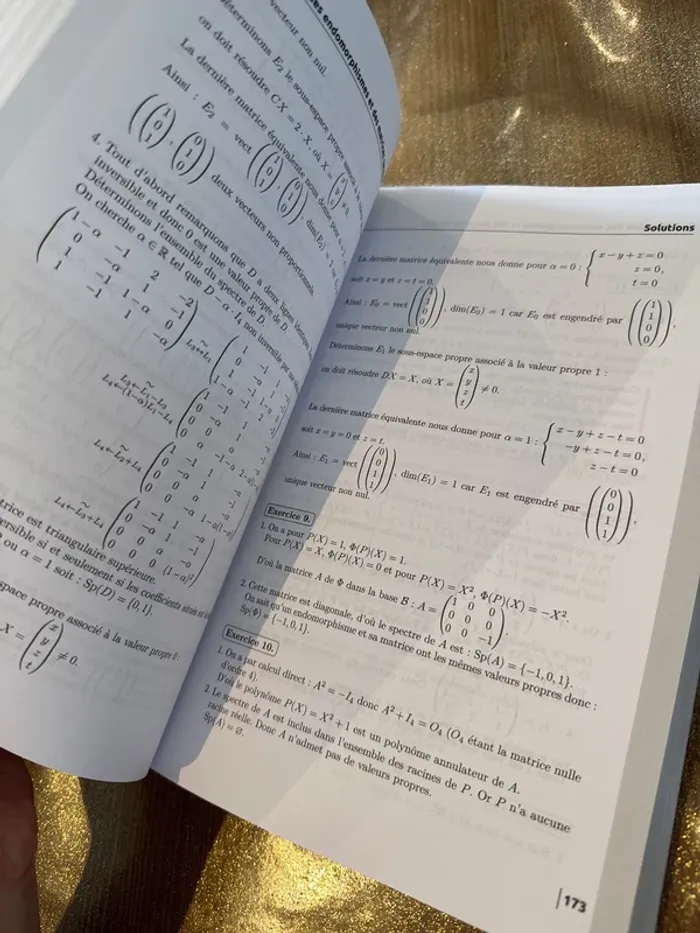 ces endomorphismes et des matrices
vecteur non nul.
Déterminons E₂ le sous-espace propre associé à la
on doit résoudre CX = 2 · X, où X = (x y z) ≠ 0.
La dernière matrice équivalente nous donne pour
Ainsi : E₂ = vect ((1 0 1), (0 1 0)), dim(E₂) =
((1 0 1), (0 1 0)) deux vecteurs non proportionnels.
4. Tout d'abord remarquons que D a deux lignes identiques,
inversible et donc 0 est une valeur propre de D.
Déterminons l'ensemble du spectre de D.
On cherche α ∈ ℝ tel que D − α · I₄ non inversible par
(1 − α −1 2 −2
0 −α 1 −1
1 −1 1 − α 0
1 −1 1 −α)
L₃↔L₁
L₃←L₃−L₁
L₄←(1−α)L₁−L₄
L₄←L₂+L₄
L₄←L₃+L₄
trice est triangulaire supérieure.
versible si et seulement si les coefficients situés sur la
ou α = 1 soit : Sp(D) = {0, 1}.
space propre associé à la valeur propre 0 :
X = (x y z t) ≠ 0.
Solutions
La dernière matrice équivalente nous donne pour α = 0 : { x − y + z = 0
z = 0,
t = 0
soit x = y et z = t = 0.
Ainsi : E₀ = vect ((1 1 0 0)), dim(E₀) = 1 car E₀ est engendré par ((1 1 0 0)),
unique vecteur non nul.
Déterminons E₁ le sous-espace propre associé à la valeur propre 1 :
on doit résoudre DX = X, où X = (x y z t) ≠ 0.
La dernière matrice équivalente nous donne pour α = 1 : { x − y + z − t = 0
−y + z − t = 0,
z − t = 0
soit x = y = 0 et z = t.
Ainsi : E₁ = vect ((0 0 1 1)), dim(E₁) = 1 car E₁ est engendré par ((0 0 1 1)),
unique vecteur non nul.
Exercice 9.
1. On a pour P(X) = 1, Φ(P)(X) = 1.
Pour P(X) = X, Φ(P)(X) = 0 et pour P(X) = X², Φ(P)(X) = −X².
D'où la matrice A de Φ dans la base B : A = (1 0 0
0 0 0
0 0 −1).
2. Cette matrice est diagonale, d'où le spectre de A est : Sp(A) = {−1, 0, 1}.
On sait qu'un endomorphisme et sa matrice ont les mêmes valeurs propres donc :
Sp(Φ) = {−1, 0, 1}.
Exercice 10.
1. On a par calcul direct : A² = −I₄ donc A² + I₄ = O₄ (O₄ étant la matrice nulle
d'ordre 4).
D'où le polynôme P(X) = X² + 1 est un polynôme annulateur de A.
2. Le spectre de A est inclus dans l'ensemble des racines de P. Or P n'a aucune
racine réelle. Donc A n'admet pas de valeurs propres.
Sp(A) = ∅.
173